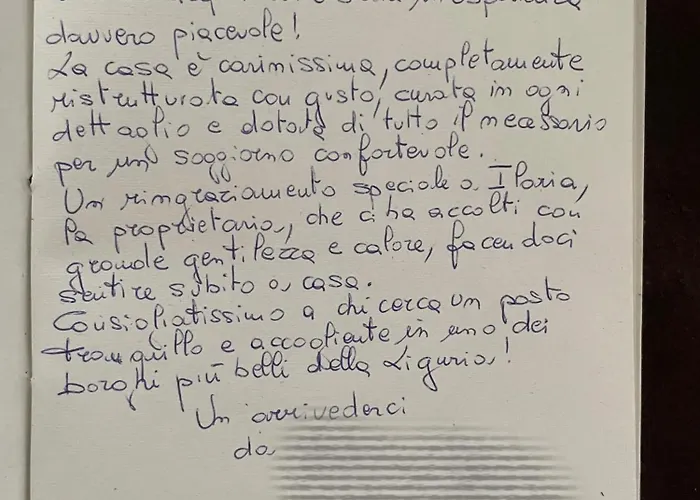 davvero piacevole!
La casa è carinissima, completamente
ristrutturata con gusto, curata in ogni
dettaglio e dotata di tutto il necessario
per un soggiorno confortevole.
Un ringraziamento speciale a Ilaria,
la proprietaria, che ci ha accolti con
grande gentilezza e calore, facendoci
sentire subito a casa.
Consigliatissimo a chi cerca un posto
tranquillo e accogliente in uno dei
borghi più belli della Liguria!
Un arrivederci
da